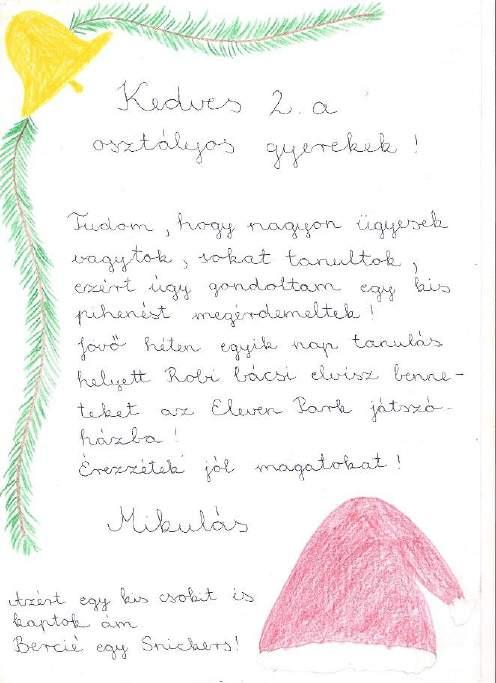 Kedves 2. a
osztályos gyerekek!
Tudom, hogy nagyon ügyesek
vagytok, sokat tanultok,
ezért úgy gondoltam egy kis
pihenést megérdemeltek!
Jövő héten egyik nap tanulás
helyett Robi bácsi elvisz benne-
teket az Eleven Park játszó-
házba!
Érezzétek jól magatokat!
Mikulás
Azért egy kis csokit is
kaptok ám
Bercié egy Snickers!